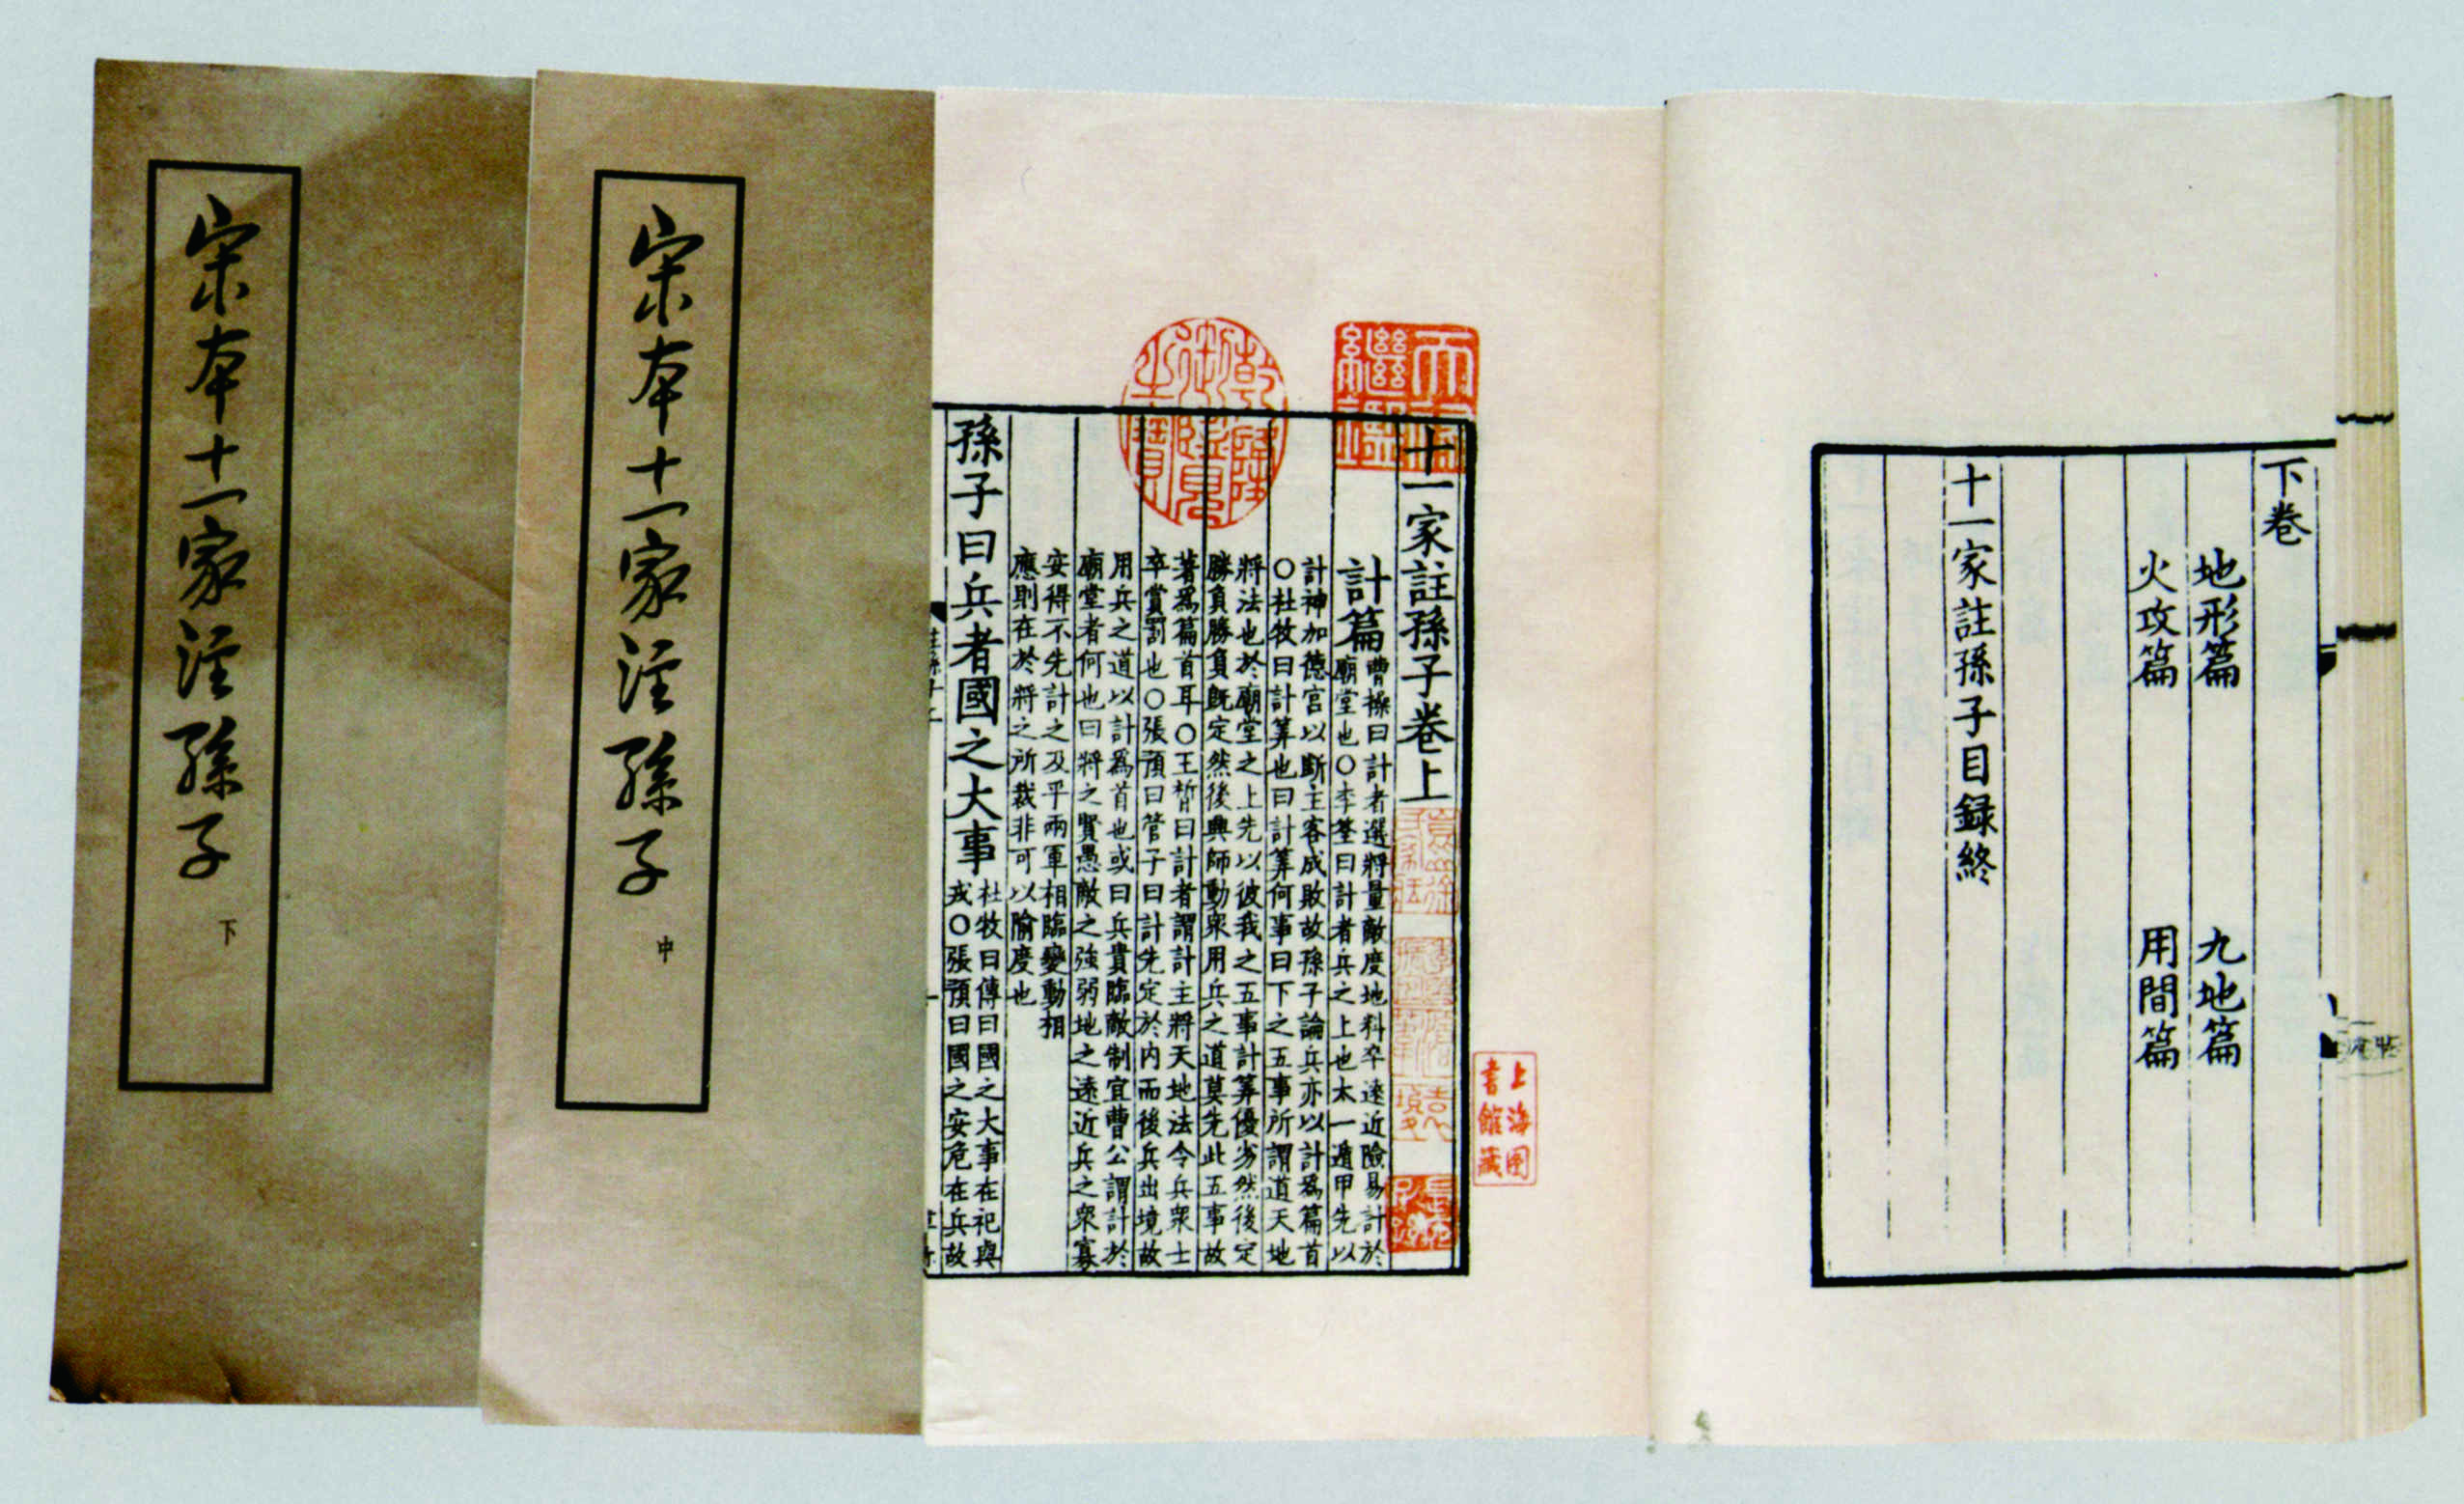 宋本十一家注孫子
下
宋本十一家注孫子
中
下卷
地形篇 九地篇
火攻篇 用間篇
十一家註孫子目録終
十一家註孫子卷上
計篇
曹操曰計者選將量敵度地料卒遠近險易計於
廟堂也○李筌曰計者兵之上也太一遁甲先以
計神加德宮以斷主客成敗故孫子論兵亦以計爲篇首
○杜牧曰計算也曰計算何事曰下之五事所謂道天地
將法也於廟堂之上先以彼我之五事計算優劣然後定
勝負勝負既定然後興師動衆用兵之道莫先此五事故
著爲篇首耳○王晳曰計者謂計主將天地法令兵衆士
卒賞罰也○張預曰管子曰計先定於内而後兵出境故
用兵之道以計爲首也或曰兵貴臨敵制宜曹公謂計於
廟堂者何也曰將之賢愚敵之強弱地之遠近兵之衆寡
安得不先計之及乎兩軍相臨變動相
應則在於將之所裁非可以隃度也
孫子曰兵者國之大事
杜牧曰傳曰國之大事在祀與
戎○張預曰國之安危在兵故
乾隆御覽之寶
天祿繼鑑
上海图
書館藏